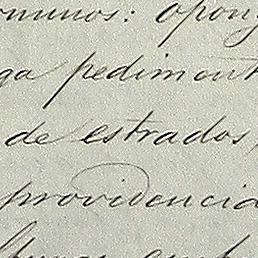 omunos: opong
ga pediment
de estrados,
providencia